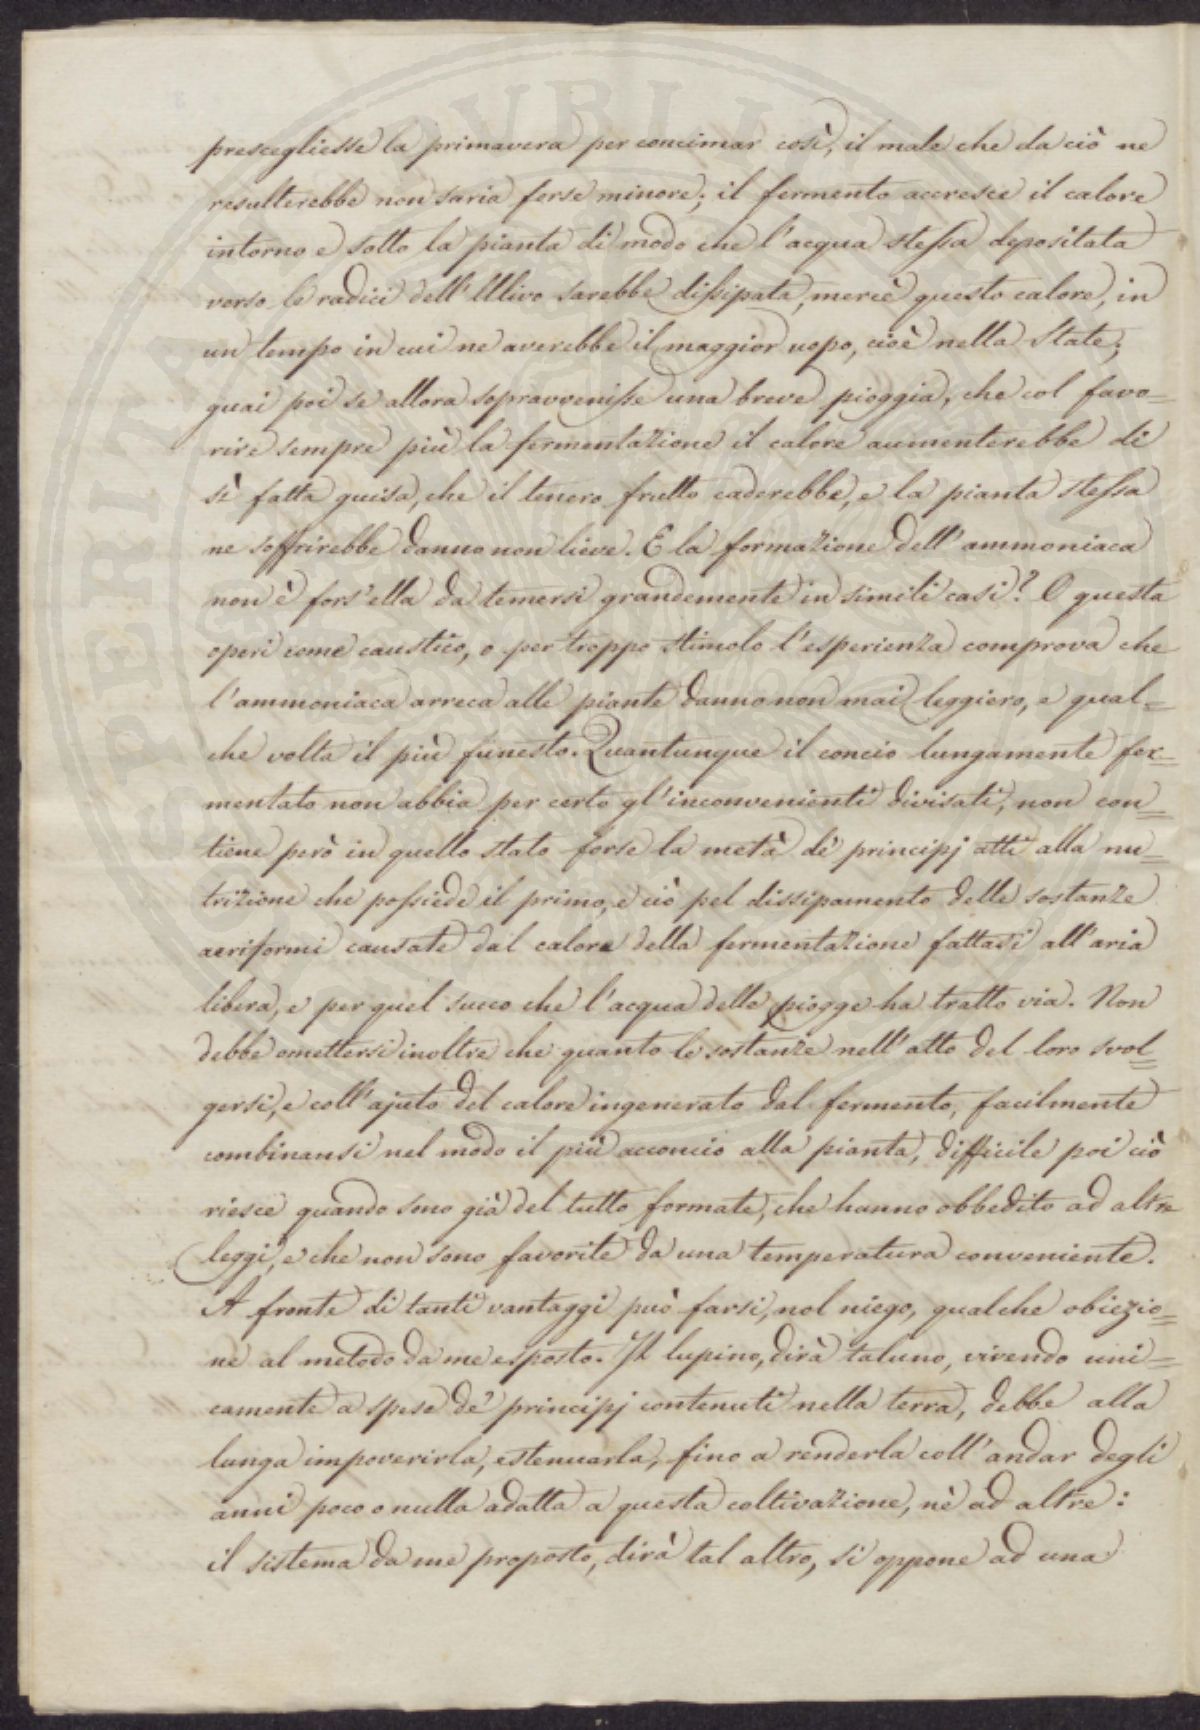 prescegliesse la primavera per concimar così, il male che da ciò ne
resulterebbe non saria forse minore; il fermento accresce il calore
intorno e sotto la pianta di modo che l'acqua stessa depositata
verso le radici dell'Ulivo sarebbe dissipata, mercè questo calore, in
un tempo in cui ne averebbe il maggior uopo, cioè nella State;
guai poi se allora sopravvenisse una breve pioggia, che col favo=
rire sempre più la fermentazione il calore aumenterebbe di
sì fatta guisa, che il tenero frutto caderebbe, e la pianta stessa
ne soffrirebbe danno non lieve. E la formazione dell'ammoniaca
non è fors'ella da temersi grandemente in simili casi? O questa
operi come caustico, o per troppo stimolo l'esperienza comprova che
l'ammoniaca arreca alle piante danno non mai leggiero, e qual=
che volta il più funesto. Quantunque il concio lungamente fer=
mentato non abbia per certo gl'inconvenienti divisati, non con=
tiene però in quello stato forse la metà de' principj atti alla nu=
trizione che possiede il primo, e ciò pel dissipamento delle sostanze
aeriformi causate dal calore della fermentazione fattasi all'aria
libera, e per quel succo che l'acqua delle piogge ha tratto via. Non
debbe omettersi inoltre che quanto le sostanze nell'atto del loro svol=
gersi, e coll'ajuto del calore ingenerato dal fermento, facilmente
combinansi nel modo il più acconcio alla pianta, difficile poi ciò
riesce quando sono già del tutto formate, che hanno obbedito ad altre
leggi, e che non sono favorite da una temperatura conveniente.
A fronte di tanti vantaggi può farsi, nol niego, qualche obiezio=
ne al metodo da me esposto. Il lupino, dirà taluno, vivendo uni=
camente a spese de' principj contenuti nella terra, debbe alla
lunga impoverirla, estenuarla, fino a renderla coll'andar degli
anni poco o nulla adatta a questa coltivazione, nè ad altre:
il sistema da me proposto, dirà tal altro, si oppone ad una